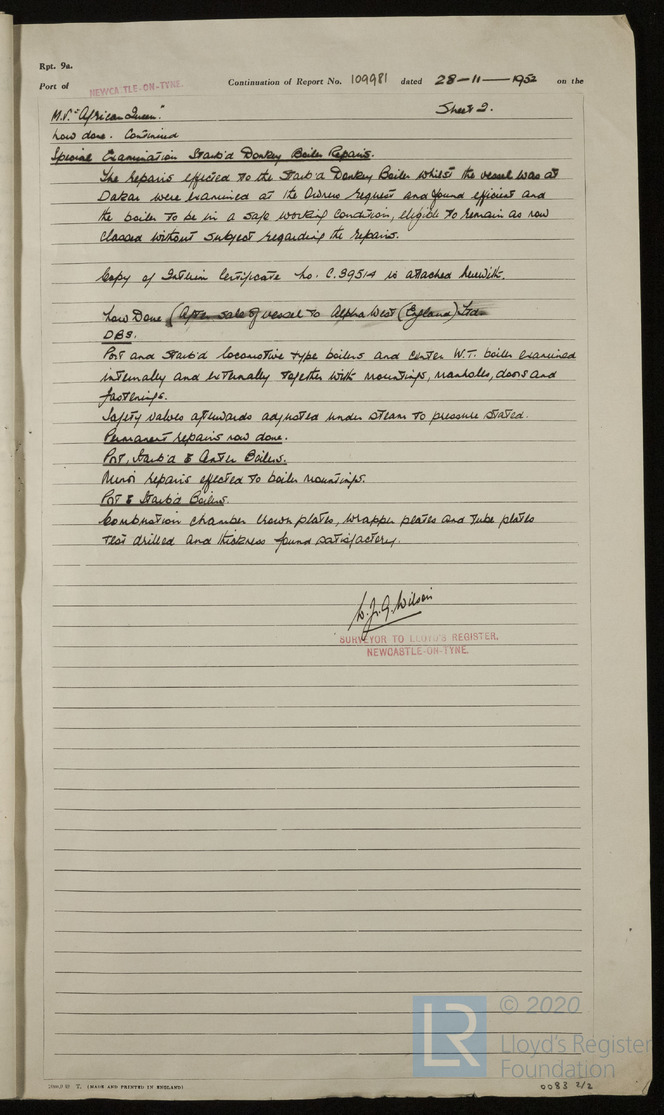 Rpt. 9a.
Port of NEWCASTLE-ON-TYNE. Continuation of Report No. 109981 dated 28-11-1952 on the
M.V. "African Queen." Sheet 2.
Now done. Continued
Special Examination Starb'd Donkey Boiler Repairs.
The repairs effected to the Starb'd Donkey Boiler whilst the vessel was at
Dakar were examined at the Owners request and found efficient and
the boiler to be in a safe working condition, eligible to remain as now
classed without subject regarding the repairs.
Copy of Interim Certificate No. C.39514 is attached herewith.
Now Done (After sale of vessel to Alpha West (England) Ltd.
DBS.
Port and Starb'd locomotive type boilers and center W.T. boiler examined
internally and externally together with mountings, manholes, doors and
fastenings.
Safety valves afterwards adjusted under steam to pressure stated.
Permanent repairs now done.
Port, Starb'd & Center Boilers.
Minor repairs effected to boiler mountings.
Port & Starb'd Boilers.
Combustion chamber crown plates, wrapper plates and tube plates
test drilled and thickness found satisfactory.
W. Wilson
SURVEYOR TO LLOYD'S REGISTER,
NEWCASTLE-ON-TYNE.
LR © 2020
Lloyd's Register
Foundation
T. (MADE AND PRINTED IN ENGLAND)
0083 2/2